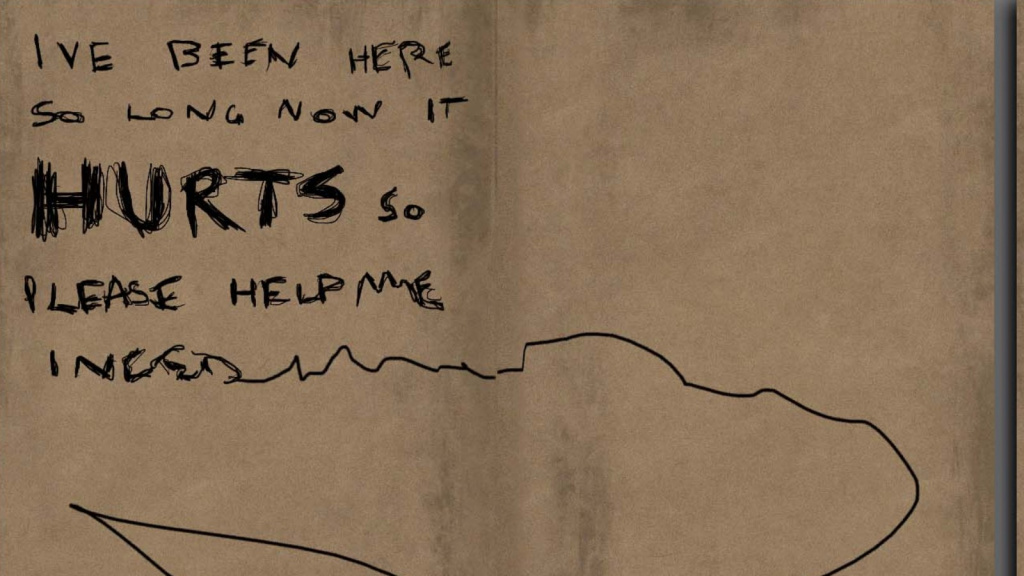 IVE BEEN HERE
SO LONG NOW IT
HURTS SO
PLEASE HELP ME
I NEED